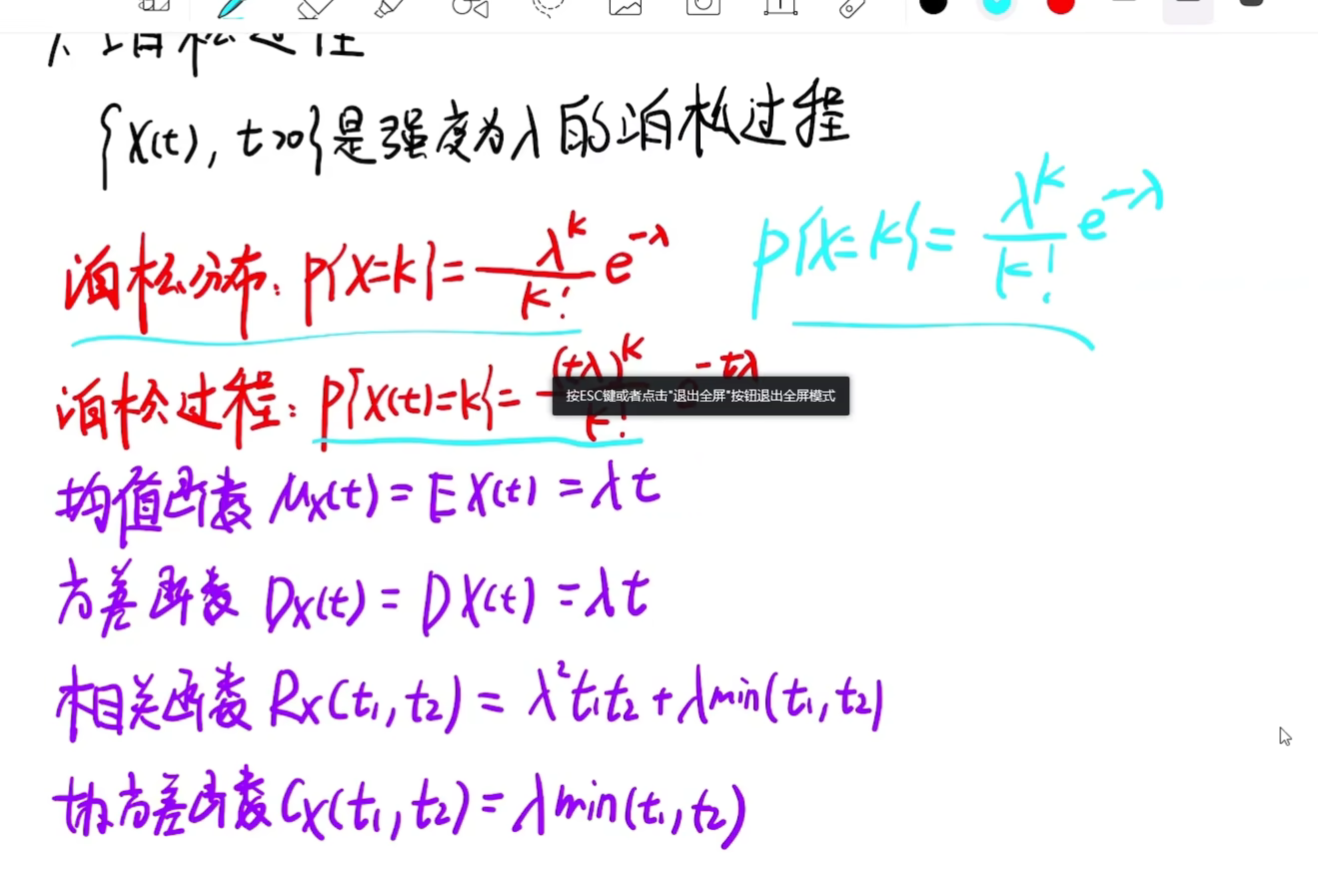 泊松过程
{X(t), t>0}是强度为λ的泊松过程
泊松分布: P{X=k}= λ^k/k! e^-λ
P{X=k}= λ^k/k! e^-λ
泊松过程: P{X(t)=k}= (tλ)^k/k! e^-tλ
按ESC键或者点击"退出全屏"按钮退出全屏模式
均值函数 μx(t) = E X(t) = λt
方差函数 Dx(t) = D X(t) = λt
相关函数 Rx(t₁, t₂) = λ²t₁t₂ + λmin(t₁, t₂)
协方差函数 Cx(t₁, t₂) = λmin(t₁, t₂)